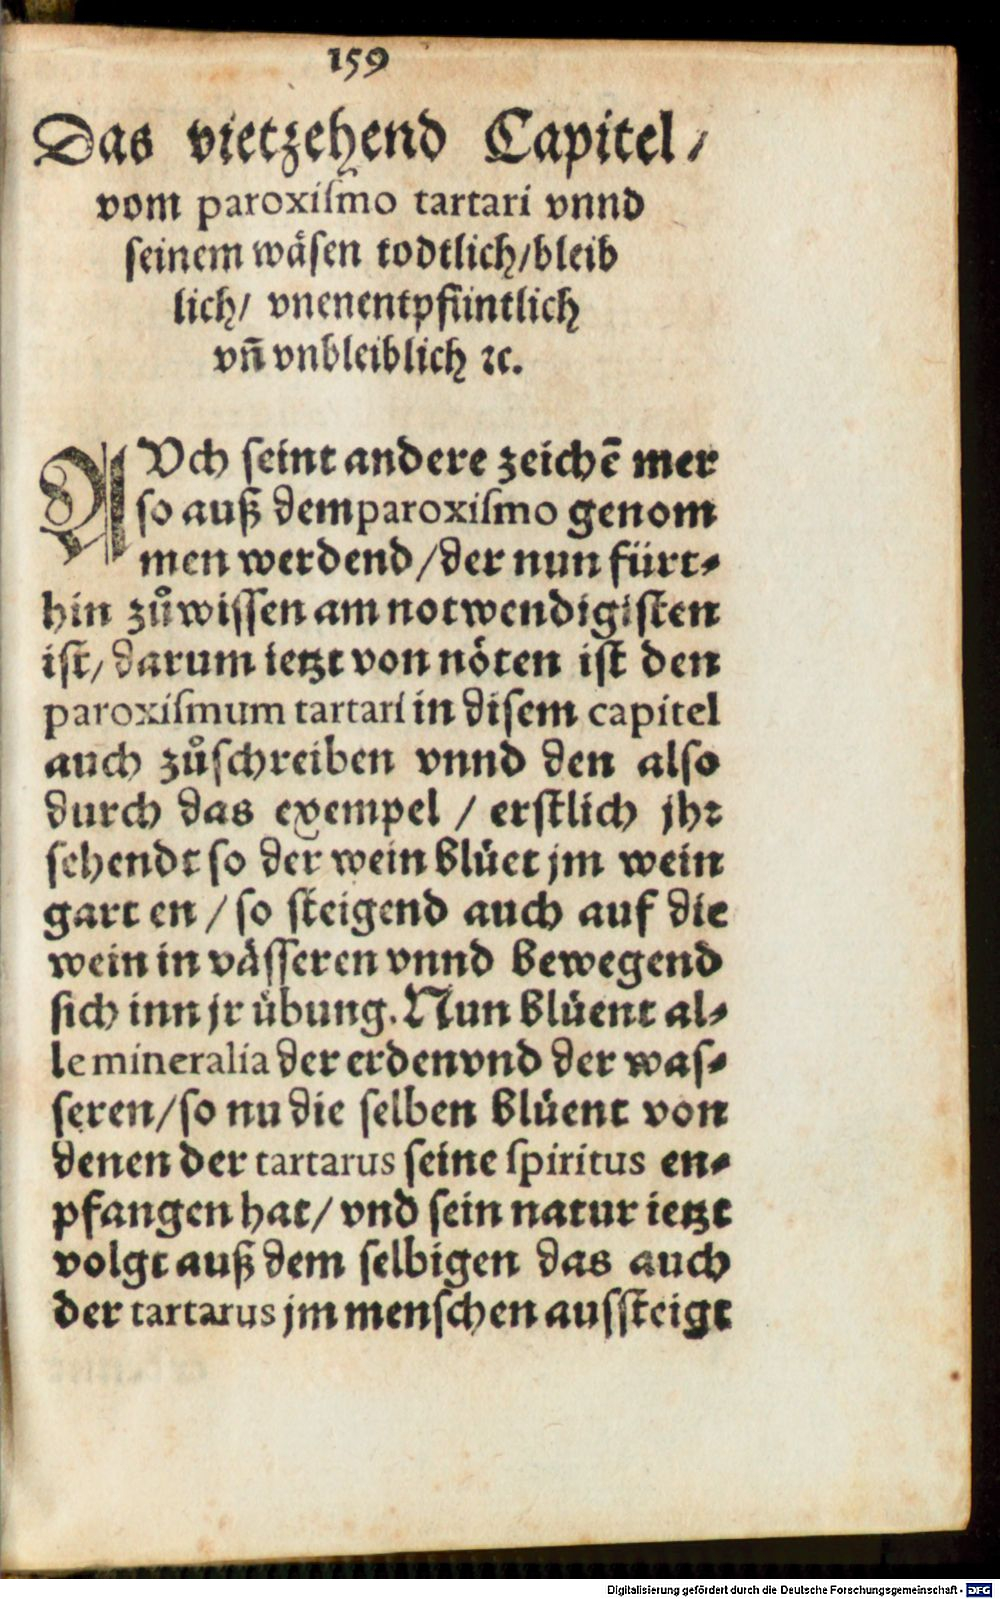 159
Das vietzehend Capitel /
vom paroxiſmo tartari vnnd
ſeinem wåſen todtlich/bleib
lich/ vnenentpfüntlich
vñ vnbleiblich ꝛc.
AVch ſeint andere zeichē mer
ſo auß dem paroxiſmo genom
men werdend /der nun fürt⸗
hin zůwiſſen am notwendigiſten
iſt/ darum ietzt von nöten iſt den
paroxiſmum tartari in diſem capitel
auch zůſchreiben vnnd den alſo
durch das exempel / erſtlich jhr
ſehendt ſo der wein blüet jm wein
gart en / ſo ſteigend auch auf die
wein in våſſeren vnnd bewegend
ſich inn jr übung. Nun blüent al⸗
le mineralia der erden vnd der waſ⸗
ſeren/ſo nu die ſelben blüent von
denen der tartarus ſeine ſpiritus en⸗
pfangen hat/ vnd ſein natur ietzt
volgt auß dem ſelbigen das auch
der tartarus jm menſchen aufſteigt
Digitalisierung gefördert durch die Deutsche Forschungsgemeinschaft - DFG